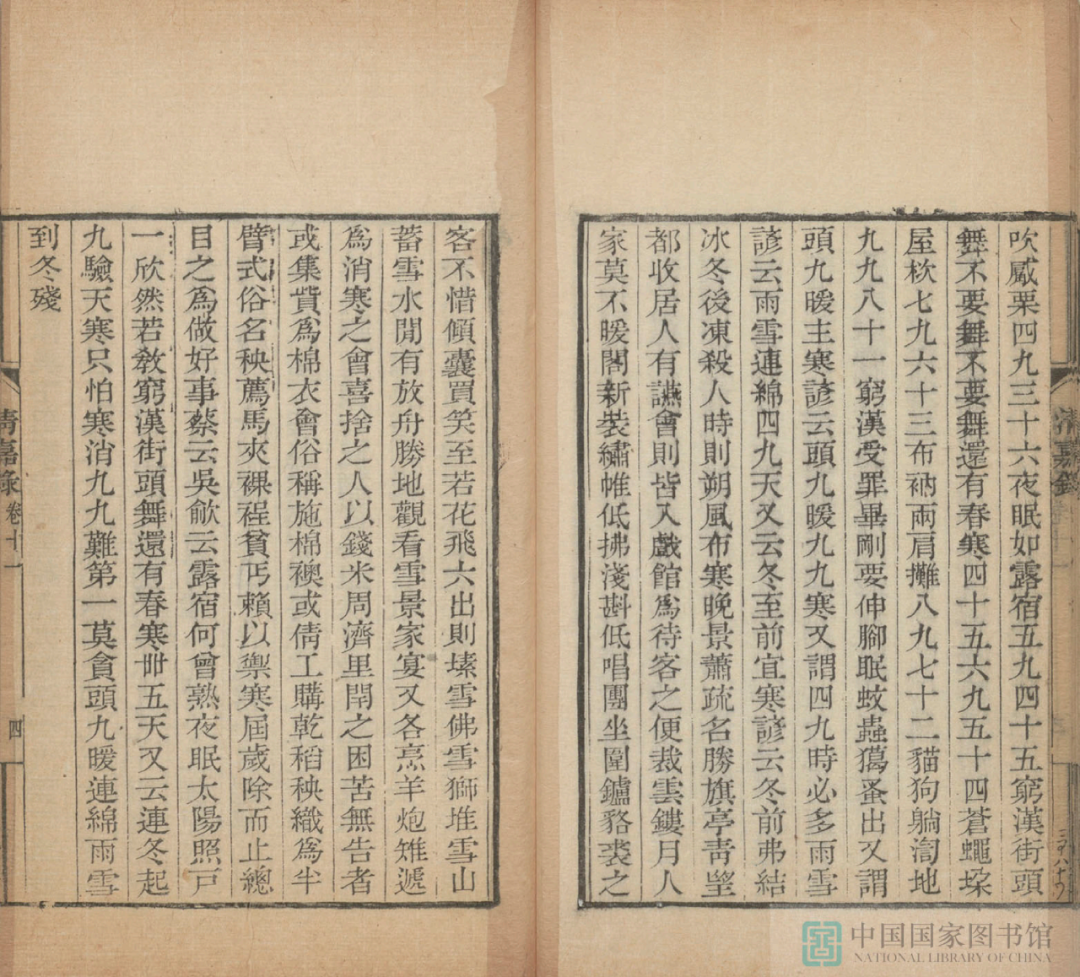 吹觱栗四九三十六夜眠如露宿五九四十五窮漢街頭
舞不要舞不要舞還有春寒四十五六九五十四蒼蠅垜
屋栨七九六十三布衲兩肩攤八九七十二貓狗躺渹地
九九八十一窮漢受罪畢剛要伸腳眠蚊蟲獦蚤出又謂
頭九暖主寒諺云頭九暖九九寒又謂四九時必多雨雪
諺云雨雪連綿四九天又云冬至前宜寒諺云冬前弗結
冰冬後凍殺人時則朔風布寒晚景蕭疏名勝旗亭靑㡷
都收居人有讌會則皆入戲館爲待客之便裁雲鏤月人
家莫不暖閣新裝繡帷低拂淺斟低唱團坐圍鑪貉裘之
清嘉錄
客不惜傾囊買笑至若花飛六出則埭雪佛雪獅堆雪山
蓄雪水閒有放舟勝地觀看雪景家宴又各烹羊炮雉遞
爲消寒之會喜捨之人以錢米周濟里閈之困苦無告者
或集貲爲棉衣會俗稱施棉襖或倩工購乾稻秧織爲半
臂式俗名秧薦馬夾裸裎貧丐賴以禦寒屆歲除而止總
目之爲做好事蔡云吳歈云露宿何曾熟夜眠太陽照戸
一欣然若敎窮漢街頭舞還有春寒卌五天又云連冬起
九驗天寒只怕寒消九九難第一莫貪頭九暖連綿雨雪
到冬殘
清嘉錄卷十一
四
中国国家图书馆
NATIONAL LIBRARY OF CHINA